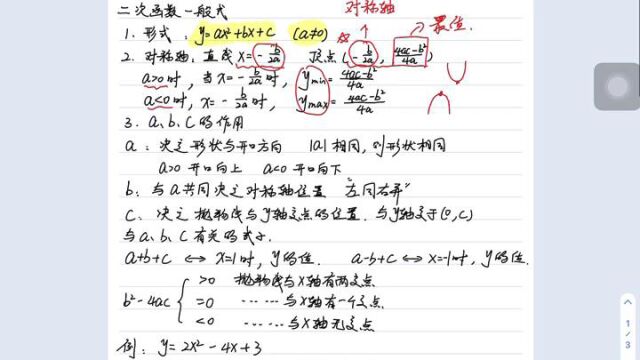 对称轴
二次函数一般式
1. 形式: y=ax²+bx+c (a≠0) ☆ 最值.
2. 对称轴: 直线 x=-b/2a 顶点(-b/2a, 4ac-b²/4a)
a>0时, 当x=-b/2a时, ymin=4ac-b²/4a
a<0时, x=-b/2a时, ymax=4ac-b²/4a
3. a、b、c的作用
a: 决定形状与开口方向 |a|相同, 则形状相同
a>0 开口向上 a<0 开口向下
b: 与a共同决定对称轴位置 "左同右异"
c: 决定抛物线与y轴交点的位置. 与y轴交于(0,c)
与a、b、c有关的式子.
a+b+c ↔ x=1时, y的值. a-b+c ↔ x=-1时, y的值.
>0 抛物线与x轴有两交点
b²-4ac { =0 …… 与x轴有一个交点
<0 …… 与x轴无交点
例: y=2x²-4x+3
1/3